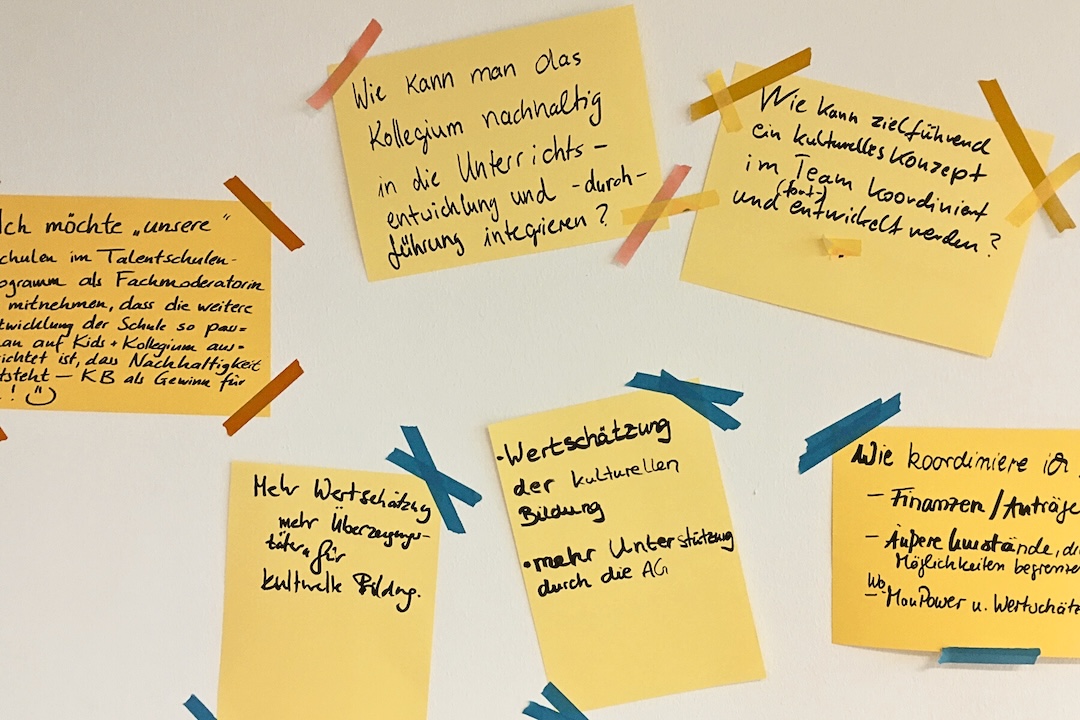 Wie kann man das
Kollegium nachhaltig
in die Unterrichts-
entwicklung und -durch-
führung integrieren?
Wie kann zielführend
ein kulturelles Konzept
im Team koordiniert
(fort-)
und entwickelt werden?
Ich möchte „unsere“
chulen im Talentschulen-
ogramm als Fachmoderatorin
mitnehmen, dass die weitere
twicklung der Schule so pau=
an auf Kids + Kollegium aus=
ichtet ist, dass Nachhaltigkeit
tsteht — KB als Gewinn für
!
Mehr Wertschätzung
mehr Überzeugungs-
täter“ für
kulturelle Bildung.
• Wertschätzung
der kulturellen
Bildung
• mehr Unterstützung
durch die AG
Wie koordiniere ich
– Finanzen / Anträge
– Äußere Umstände, di
Möglichkeiten begrenze
Wo
– ManPower u. Wertschätz